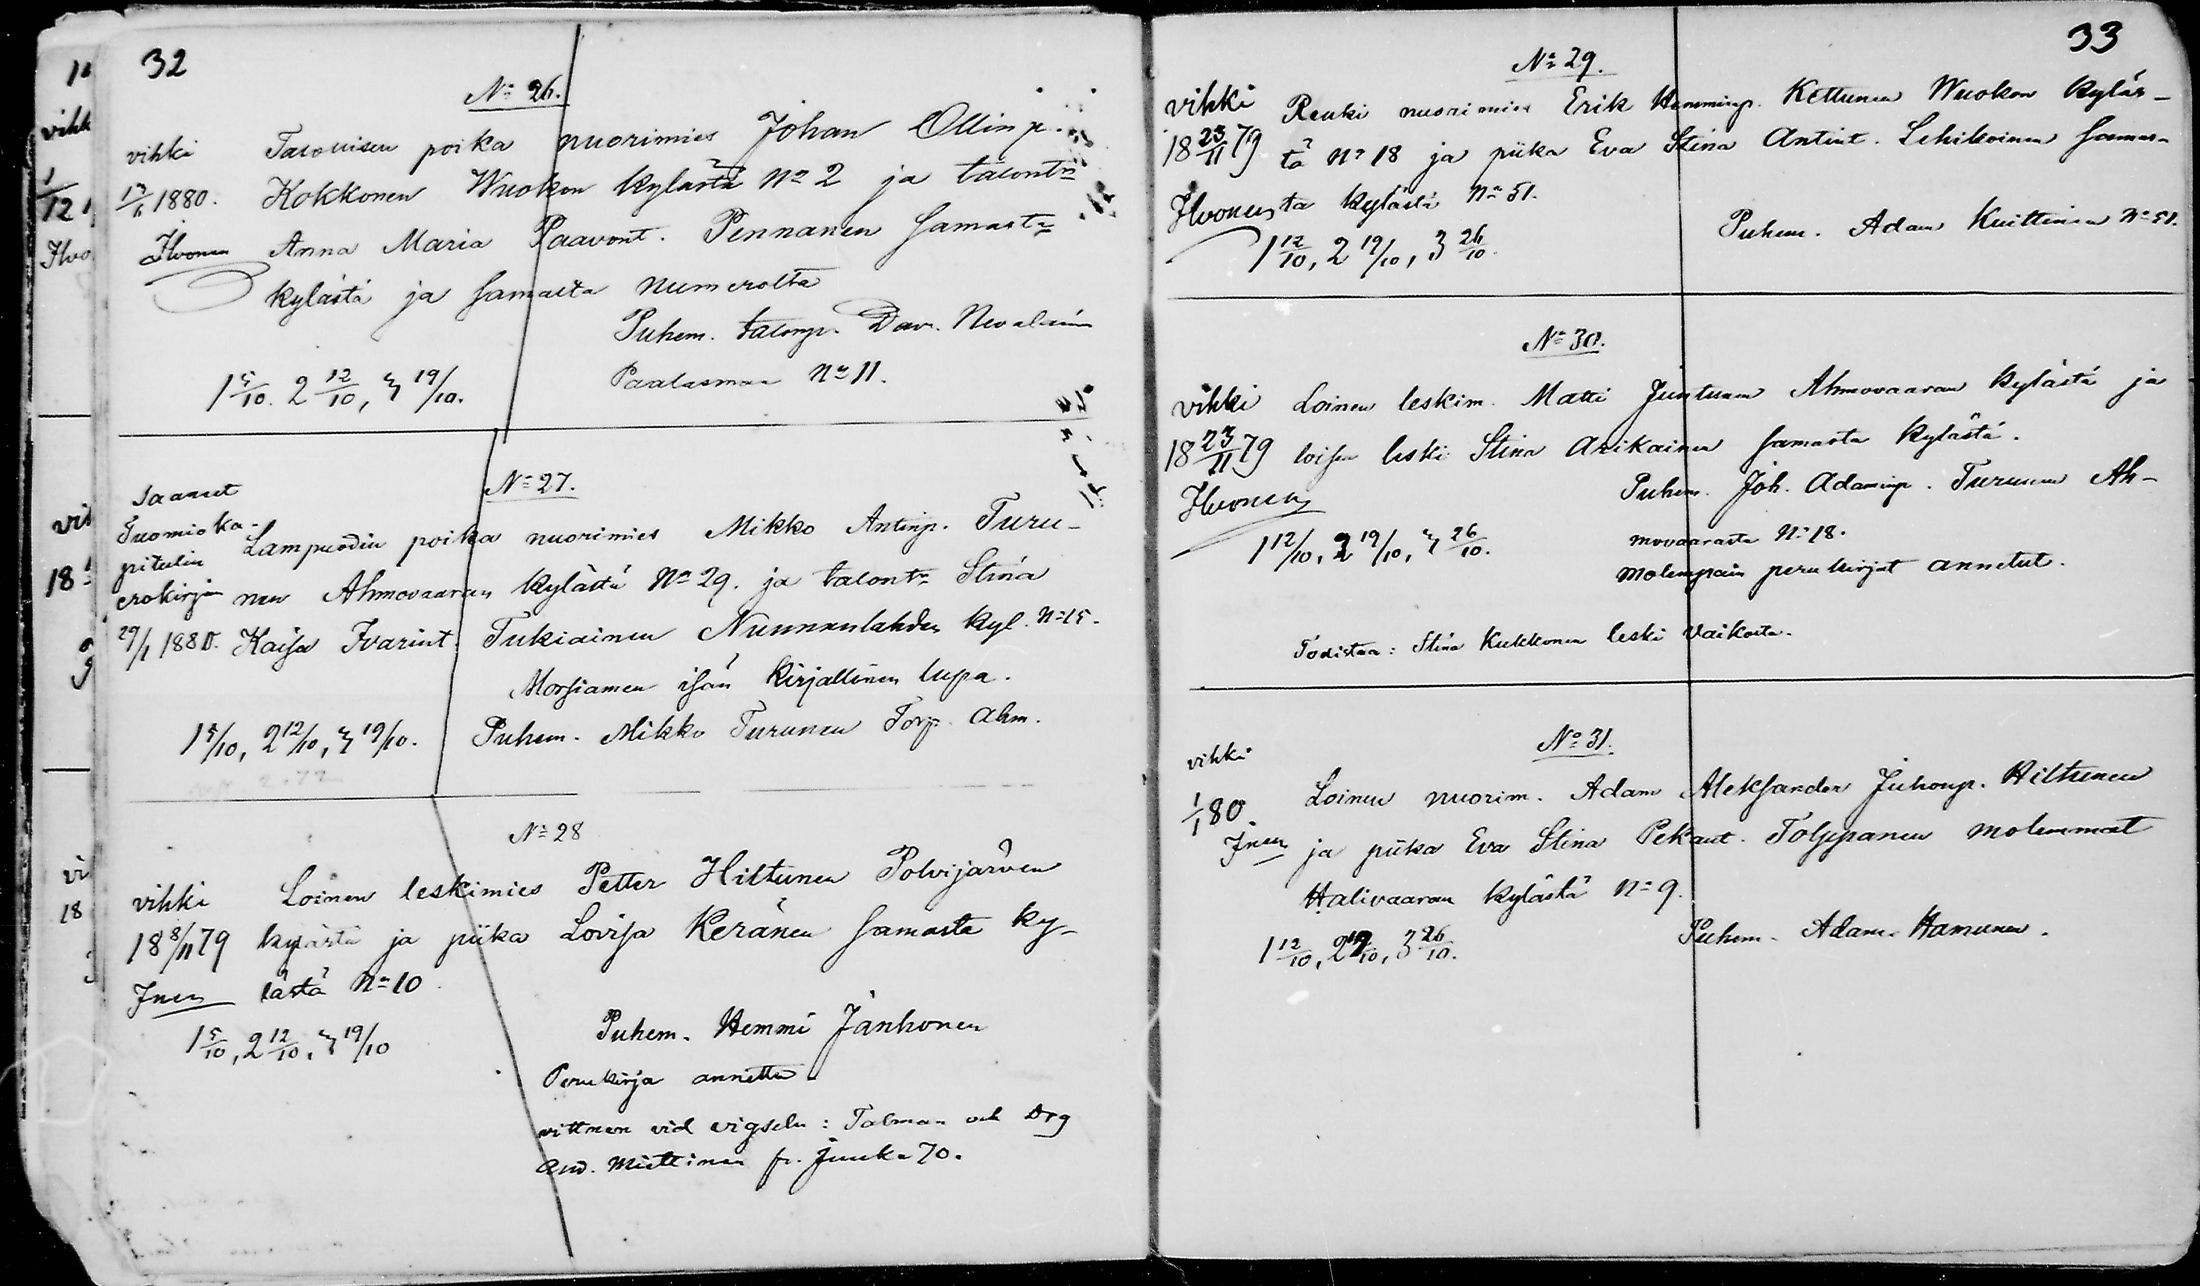 32
No 26.
vihki Talollisen poika nuorimies Johan Ollinp.
1880. Kokkonen Wuokon kylästä No 2 ja talont:r
Ihvonen Anna Maria Paavont. Pennanen samasta
kylästä ja samasta numerolta
Puhem. talonp. Dav. Nevalainen
Paalasmaa No 11.
1 5/10. 2 12/10, 3 19/10.
No 27.
Saaneet
Tuomioka-
pitulin
erokirjan
29/1 1880.
Lampuodin poika nuorimies Mikko Antinp. Turu-
nen Ahmovaaran kylästä No 29. ja talont:r Stina
Kaisa Ivarint. Tukiainen Nunnanlahden kyl. No 15.
Morsiamen isän kirjallinen lupa.
1 5/10, 2 12/10, 3 19/10. Puhem. Mikko Turunen Torp. Ahm.
No 28
vihki Loinen leskimies Petter Hiltunen Polvijärven
18 8/11 79 kylästä ja piika Lovisa Keränen samasta ky-
Inen lästä No 10.
1 5/10, 2 12/10, 3 19/10
Puhem. Hemmi Jänhonen
Perukirja annettu.
vittnen vid vigseln: Talman och Drg
And. Miettinen fr. Juuka 70.
33
No 29.
vihki Renki nuorimies Erik Hemminp. Kettunen Wuokon kyläs-
18 23/11 79 tä No 18 ja piika Eva Stina Antint. Lehikoinen samas-
Ihvonen ta kylästä No 51.
1 12/10, 2 19/10, 3 26/10.
Puhem. Adam Kuittinen No 51.
No 30.
vihki Loinen leskim. Matti Juntunen Ahmovaaran kylästä ja
18 23/11 79 loisen leski Stina Arikainen samasta kylästä.
Ihvonen
Puhem. Joh. Adaminp. Turunen Ah-
1 12/10, 2 19/10, 3 26/10.
movaarasta No 18.
molempain perukirjat annetut.
Todistaa: Stina Kukkonen leski Vaikosta.
No 31.
vihki
1/1 80 Loinen nuorim. Adam Aleksander Juhonp. Hiltunen
Inen ja piika Eva Stina Pekant. Tolppanen molemmat
Halivaaran kylästä No 9.
1 12/10, 2 19/10, 3 26/10.
Puhem. Adam Hamunen.